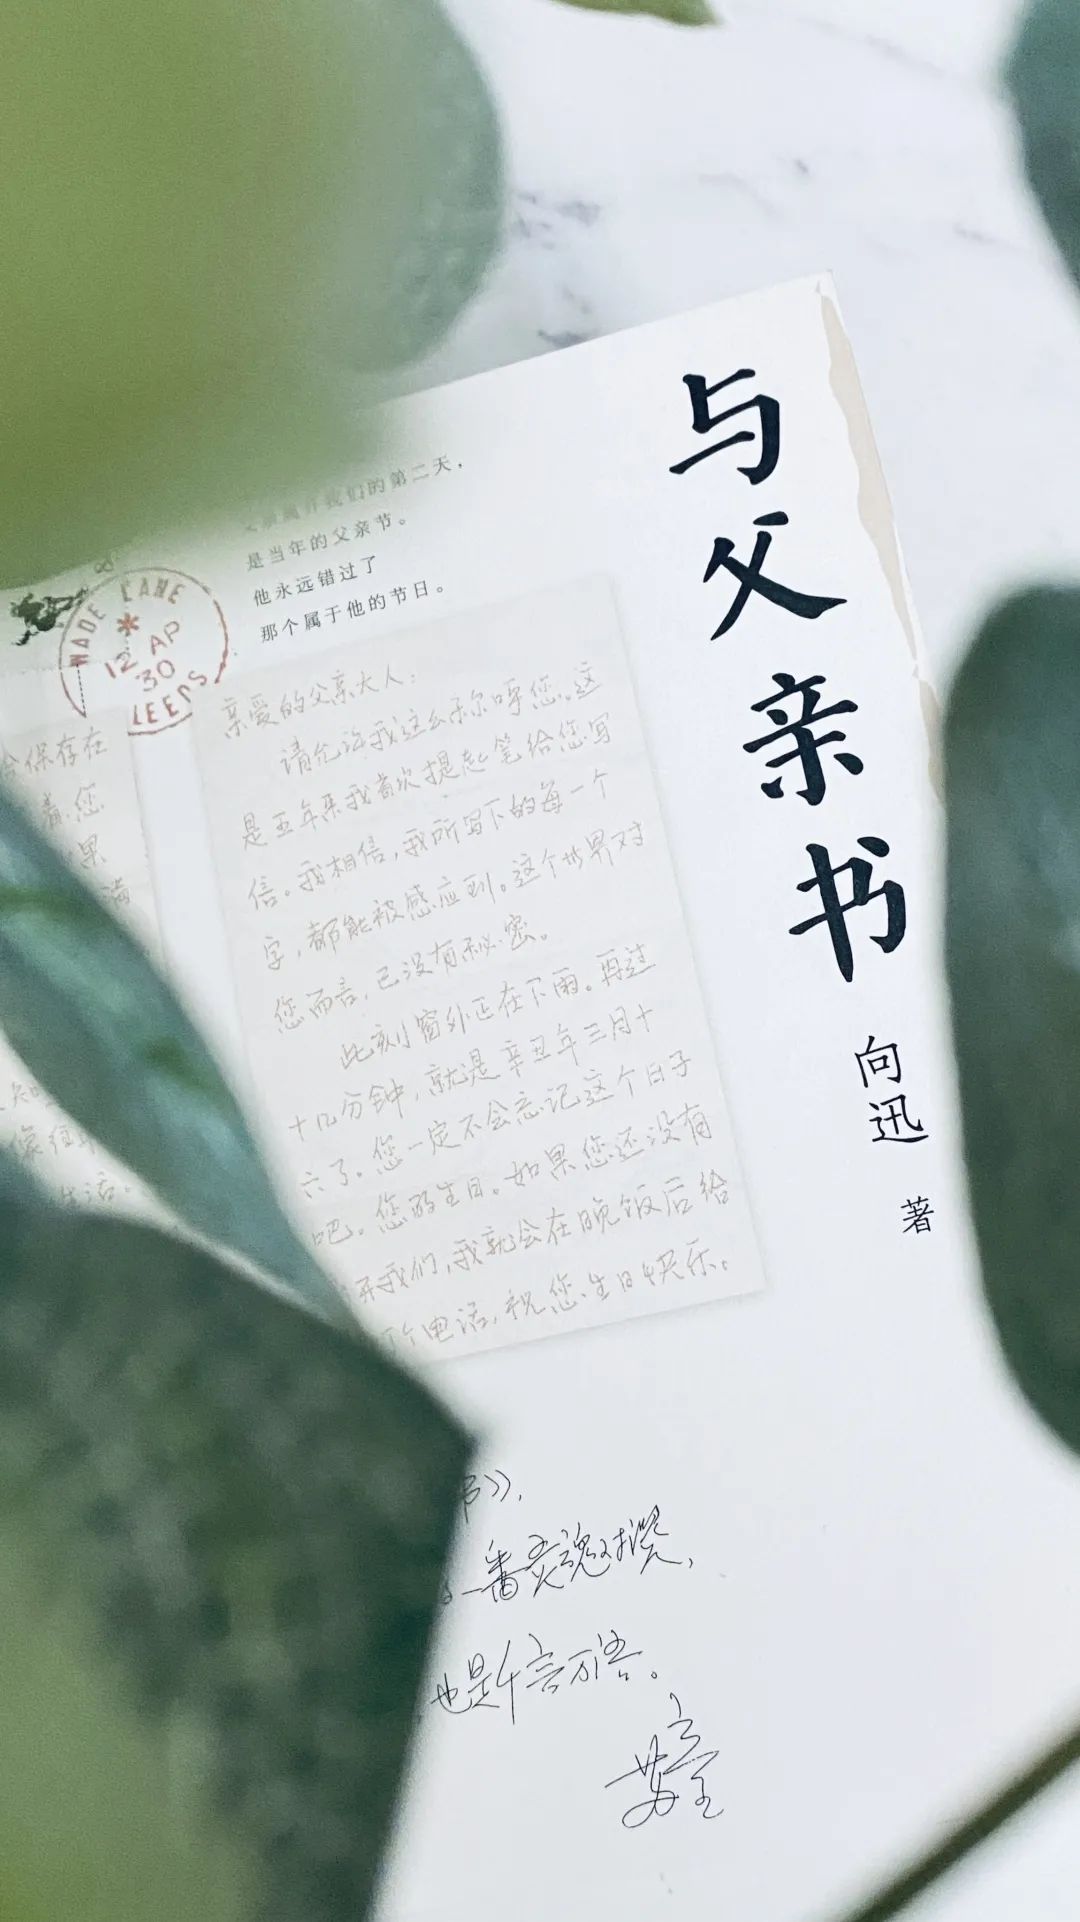 与父亲书
向迅
著
我们的第二天，
是当年的父亲节。
他永远错过了
那个属于他的节日。
WADE LANE
12 AP
30
LEEDS
亲爱的父亲大人：
请允许我这么称呼您。这
是五年来我首次提起笔给您写
信。我相信，我所写下的每一个
字，都能被感应到。这个世界对
您而言，已没有秘密。
此刻窗外正在下雨。再过
十几分钟，就是辛丑年三月十
六了。您一定不会忘记这个日子
吧。您的生日。如果您还没有
开我们，我就会在晚饭后给
个电话，祝您生日快乐。
保存在
着您
果
满
生活。
书》，
一番灵魂对撰，
也是千言万语。